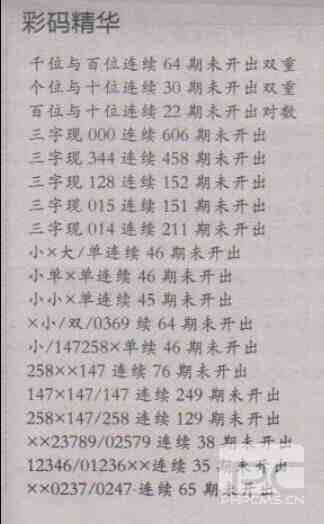 彩码精华
千位与百位连续 64 期未开出双重
个位与十位连续 30 期未开出双重
百位与十位连续 22 期未开出对数
三字现 000 连续 606 期未开出
三字现 344 连续 458 期未开出
三字现 128 连续 152 期未开出
三字现 015 连续 151 期未开出
三字现 014 连续 211 期未开出
小×大/单连续 46 期未开出
小单×单连续 46 期未开出
小小×单连续 45 期未开出
×小/双/0369 续 64 期未开出
小/147258×单续 46 期未开出
258××147 连续 76 期未开出
147×147/147 连续 249 期未开出
258×147/258 连续 129 期未开出
××23789/02579 连续 38 期未开出
12346/01236××连续 35 期未开出
××0237/0247·连续 65 期未开出
PHPCMS.CN